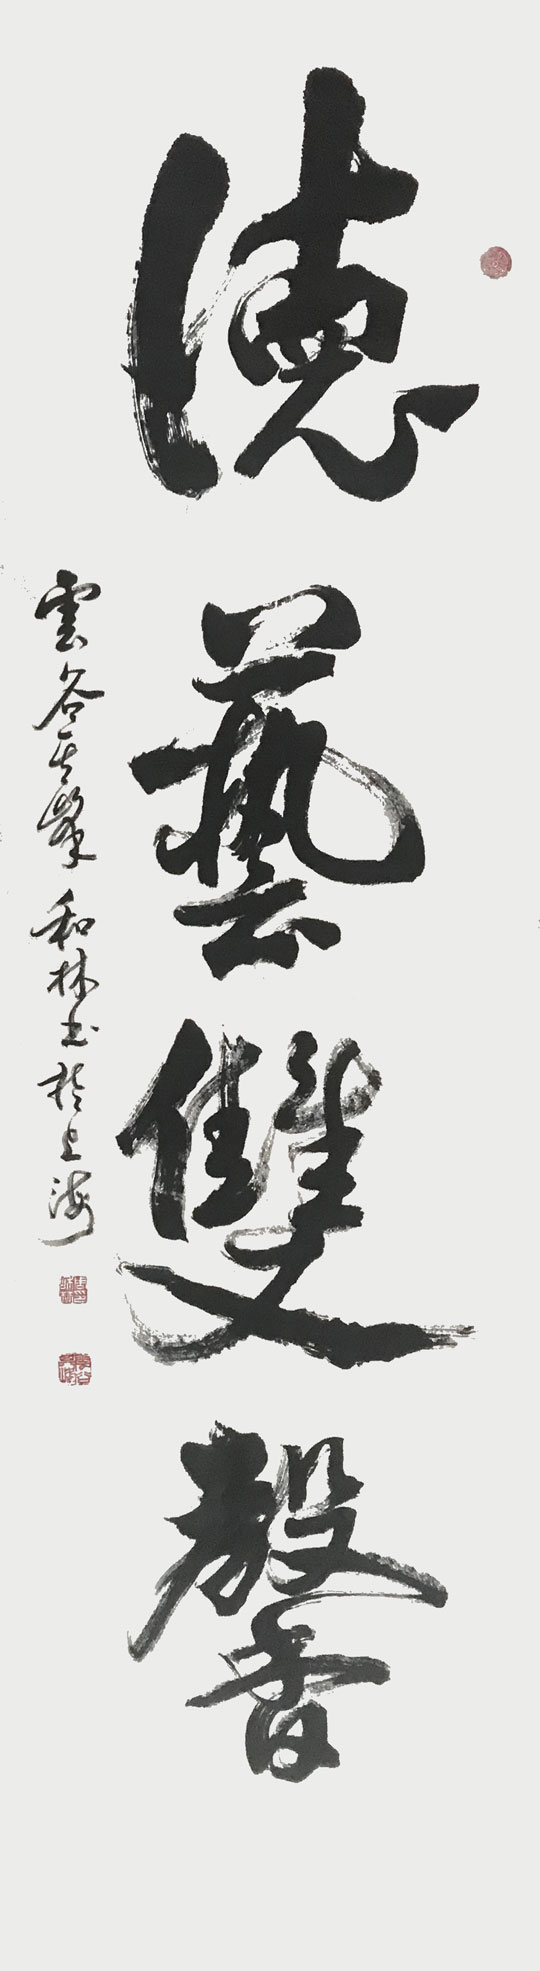 德藝雙馨
雲谷 和林書於上海